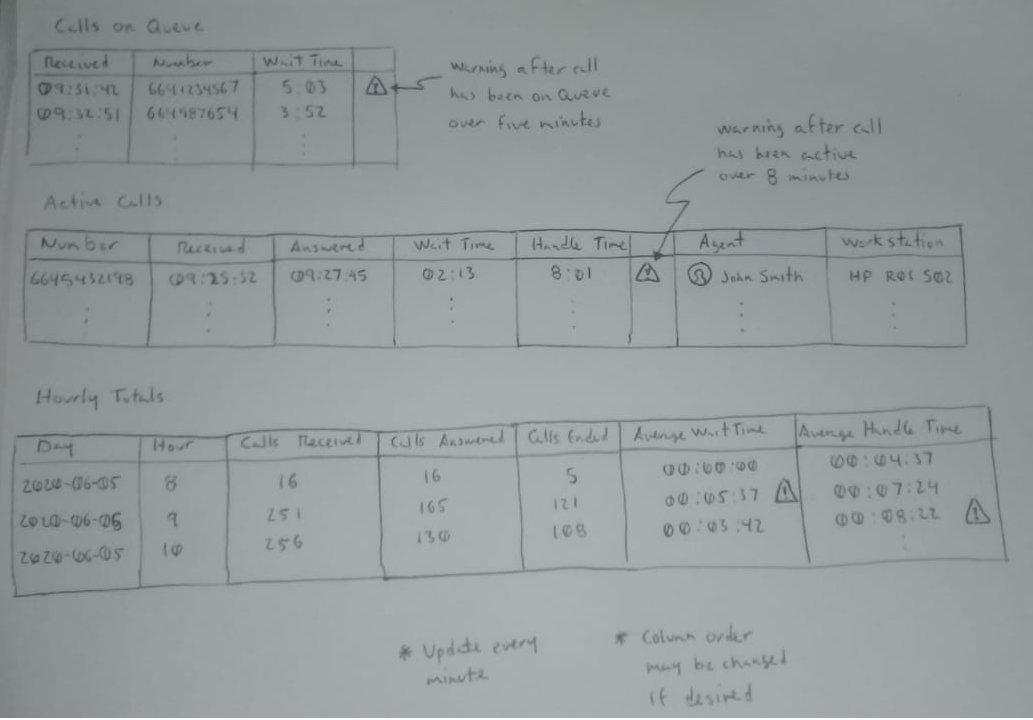 Calls on Queue
Received Number Wait Time
09:31:42 6641234567 5:03
09:32:51 664987654 3:52
Warning after call
has been on Queue
over five minutes
warning after call
has been active
over 8 minutes
Active Calls
Number Received Answered Wait Time Handle Time Agent Workstation
6645432198 09:25:32 09:27:45 02:13 8:01 John Smith HP R01 S02
Hourly Totals
Day Hour Calls Received Calls Answered Calls Ended Average Wait Time Average Handle Time
2020-06-05 8 16 16 5 00:00:00 00:04:37
2020-06-05 9 251 165 121 00:05:37 00:07:24
2020-06-05 10 256 130 108 00:03:42 00:08:22
* Update every
minute
* Column order
may be changed
if desired